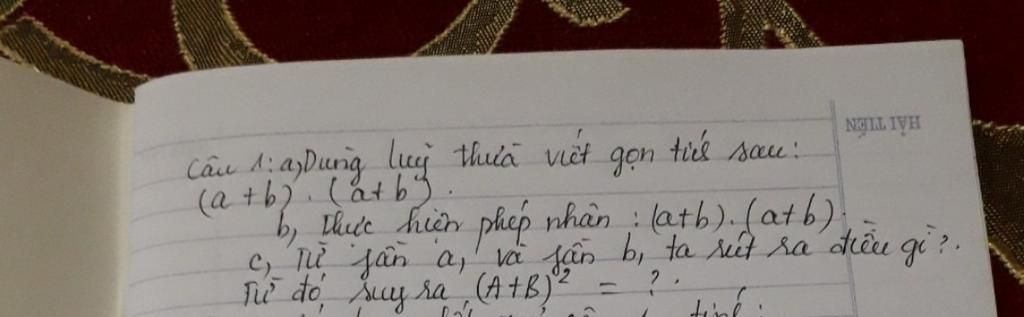 HẢI TIẾN
Câu 1: a, Dùng luỹ thừa viết gọn tích sau:
(a+b).(a+b).
b, Thực hiện phép nhân: (a+b).(a+b)
c, Từ phần a, và phần b, ta rút ra điều gì?.
Từ đó, suy ra (A+B)² = ?.